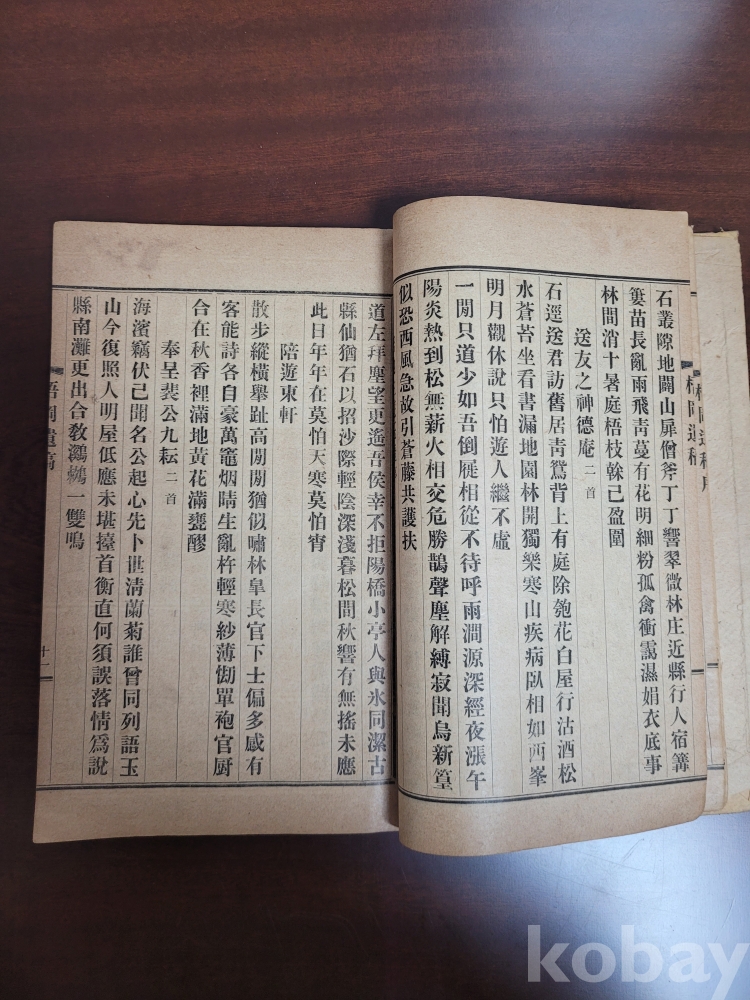 石叢隙地闢山扉僧斧丁丁響翠微林庄近縣行人宿篝
簍苗長亂雨飛靑蔓有花明細粉孤禽衝靄濕娟衣底事
林間消十暑庭梧枝榦已盈圍
送友之神德庵 二首
石逕送君訪舊居靑鴛背上有庭除匏花白屋行沽酒松
水蒼苔坐看書漏地園林開獨樂寒山疾病臥相如西峯
明月觀休說只怕遊人繼不虛
一閒只道少如吾倒屣相從不待呼雨澗源深經夜漲午
陽炎熱到松無薪火相交危勝鵲聲塵解縛寂聞烏新篁
似恐西風急故引蒼藤共護扶
道左拜塵望更遙吾侯幸不拒陽橋小亭人與氷同潔古
縣仙猶石以招沙際輕陰深淺暮松間秋響有無搖未應
此日年年在莫怕天寒莫怕宵
陪遊東軒
散步縱橫擧趾高閒閒猶似嘯林皐長官下士偏多感有
客能詩各自豪萬竈烟晴生亂杵輕寒紗薄刼單袍官厨
合在秋香裡滿地黃花滿甕醪
奉呈裴公九耘 二首
海濱竊伏已聞名公起心先卜世淸蘭菊誰曾同列語玉
山今復照人明屋低應未堪擡首衡直何須誤落情爲說
縣南灘更出合敎鸂鶒一雙鳴
梧岡遺稿
十一
kobay